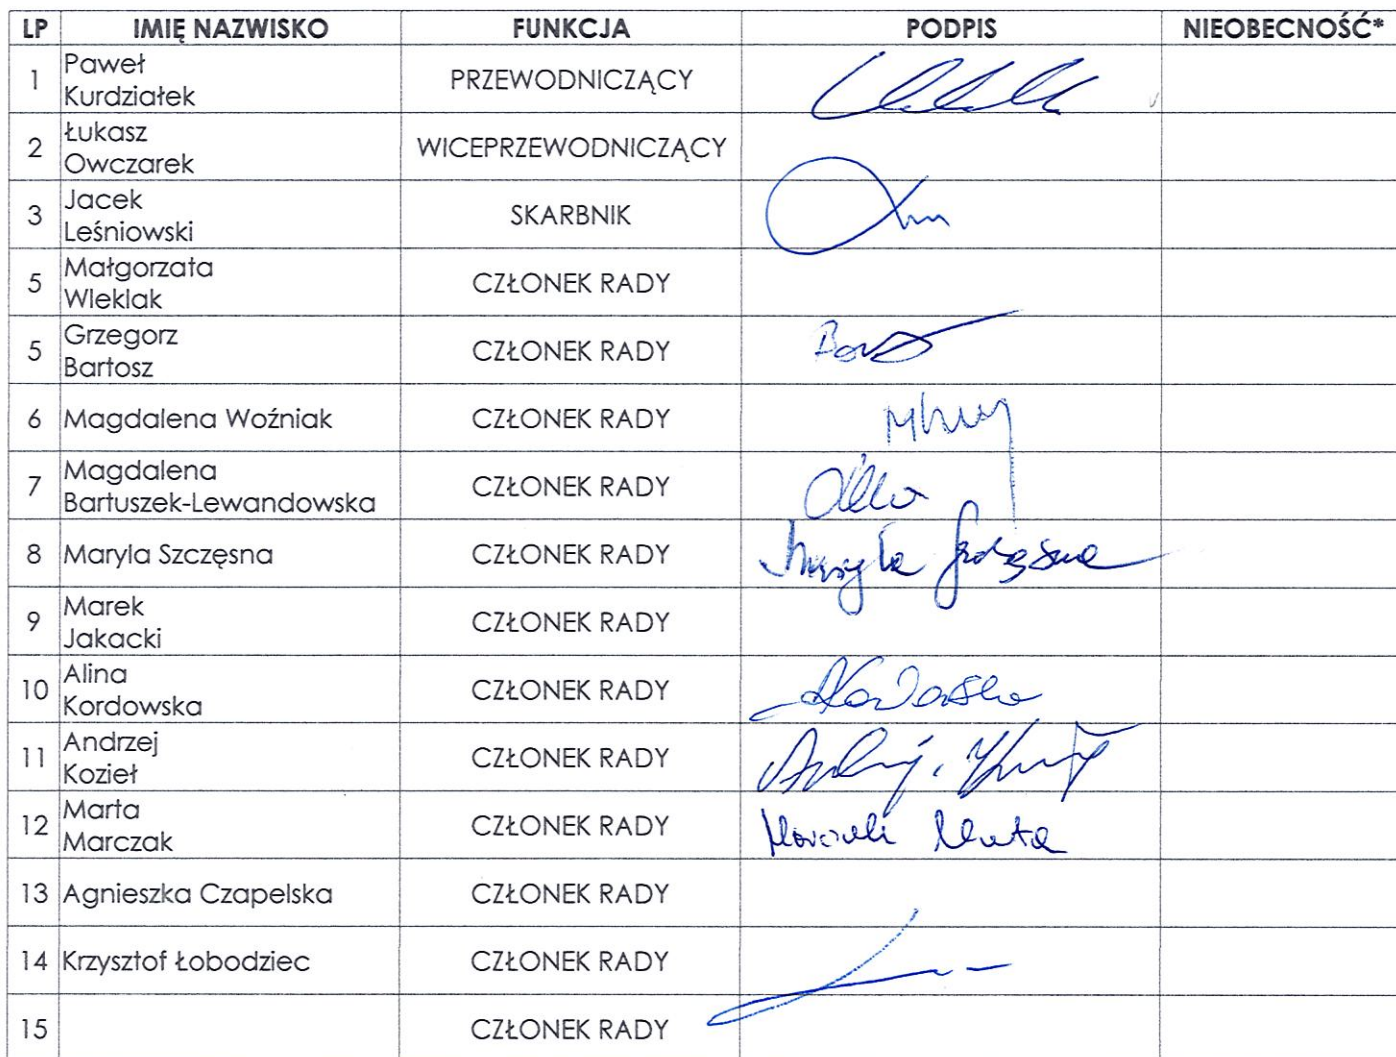 LP IMIĘ NAZWISKO FUNKCJA PODPIS NIEOBECNOŚĆ*
1 Paweł
Kurdziałek PRZEWODNICZĄCY
2 Łukasz
Owczarek WICEPRZEWODNICZĄCY
3 Jacek
Leśniowski SKARBNIK
5 Małgorzata
Wleklak CZŁONEK RADY
5 Grzegorz
Bartosz CZŁONEK RADY
6 Magdalena Woźniak CZŁONEK RADY
7 Magdalena
Bartuszek-Lewandowska CZŁONEK RADY
8 Maryla Szczęsna CZŁONEK RADY Maryla Szczęsna
9 Marek
Jakacki CZŁONEK RADY
10 Alina
Kordowska CZŁONEK RADY
11 Andrzej
Kozieł CZŁONEK RADY
12 Marta
Marczak CZŁONEK RADY Marczak Marta
13 Agnieszka Czapelska CZŁONEK RADY
14 Krzysztof Łobodziec CZŁONEK RADY
15 CZŁONEK RADY